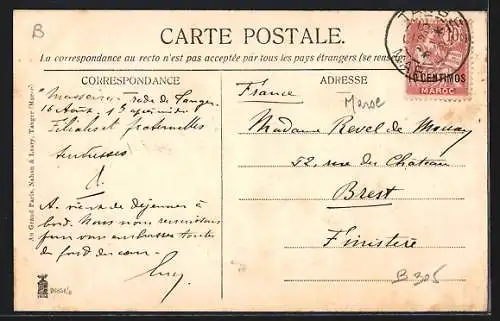 B
CARTE POSTALE.
La correspondance au recto n'est pas acceptée par tous les pays étrangers (se rens
CORRESPONDANCE
rade de Tanger
16 Août
Filiales et fraternelles
tendresses
A.
A. vient de déjeuner à
bord. Nous nous réunissons
pour vous embrasser toutes
du fond du cœur.
Au Grand Paris, Nahon & Lasry, Tanger (Maroc)
ADRESSE
France
Maroc
Madame Revel de
52, rue du Château
Brest
Finistère
B 305
10
10 CENTIMOS
MAROC
TANGER